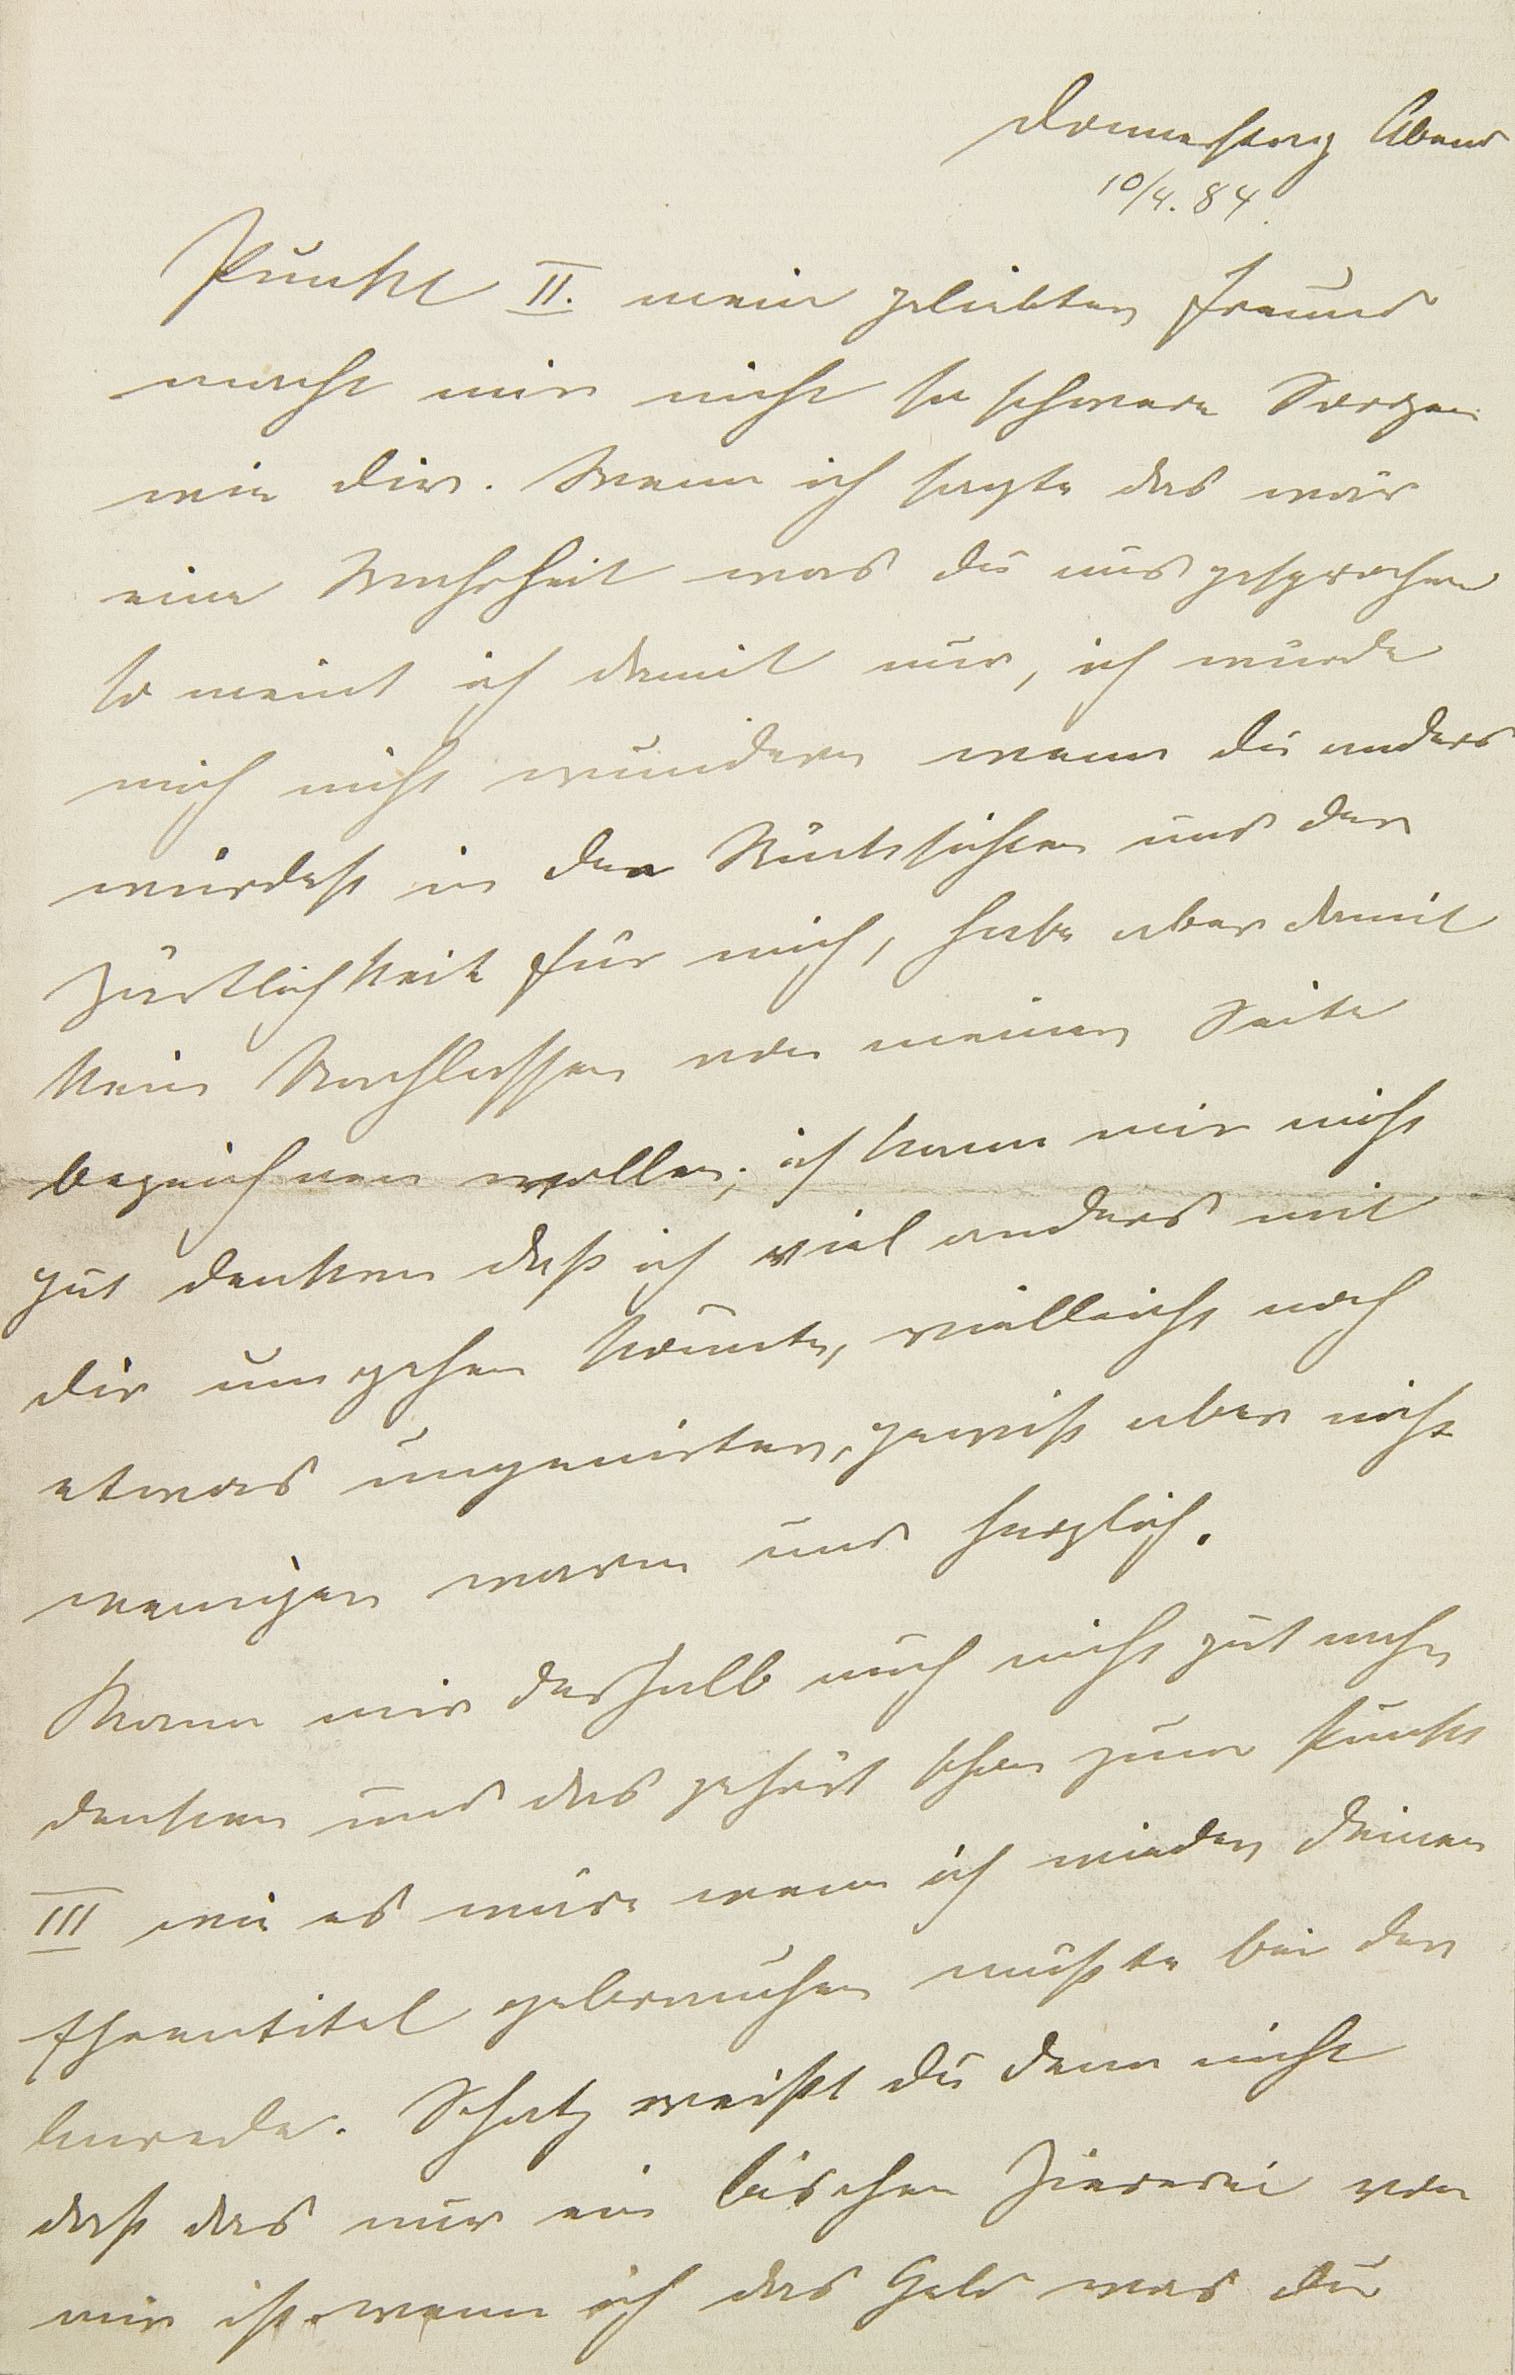 Donnerstag Abend
10/4. 84.
Punkt II. mein geliebter Freund
macht mir nicht so schwere Sorgen
wie dir. Wenn ich sagte das wär
eine Wahrheit was du ausgesprochen
so meint ich damit nur, ich würde
mich nicht wundern wenn du anders
würdest in den Rücksichten und der
Zärtlichkeit für mich, habe aber damit
kein Nachlassen von meiner Seite
bezeichnen wollen; ich kann mir nicht
gut denken daß ich viel anders mit
dir umgehen könnte, vielleicht noch
etwas ungenirter, gewiß aber nicht
weniger warm und herzlich.
Kann mir deshalb auch nicht gut
denken und das gehört schon zum Punkt
III wie es wäre wenn ich wieder deinen
Ehrentitel gebrauchen müßte bei der
Anrede. Schatz weißt du denn nicht
daß das nur ein bischen Ziererei von
mir ist wenn ich das Geld was du